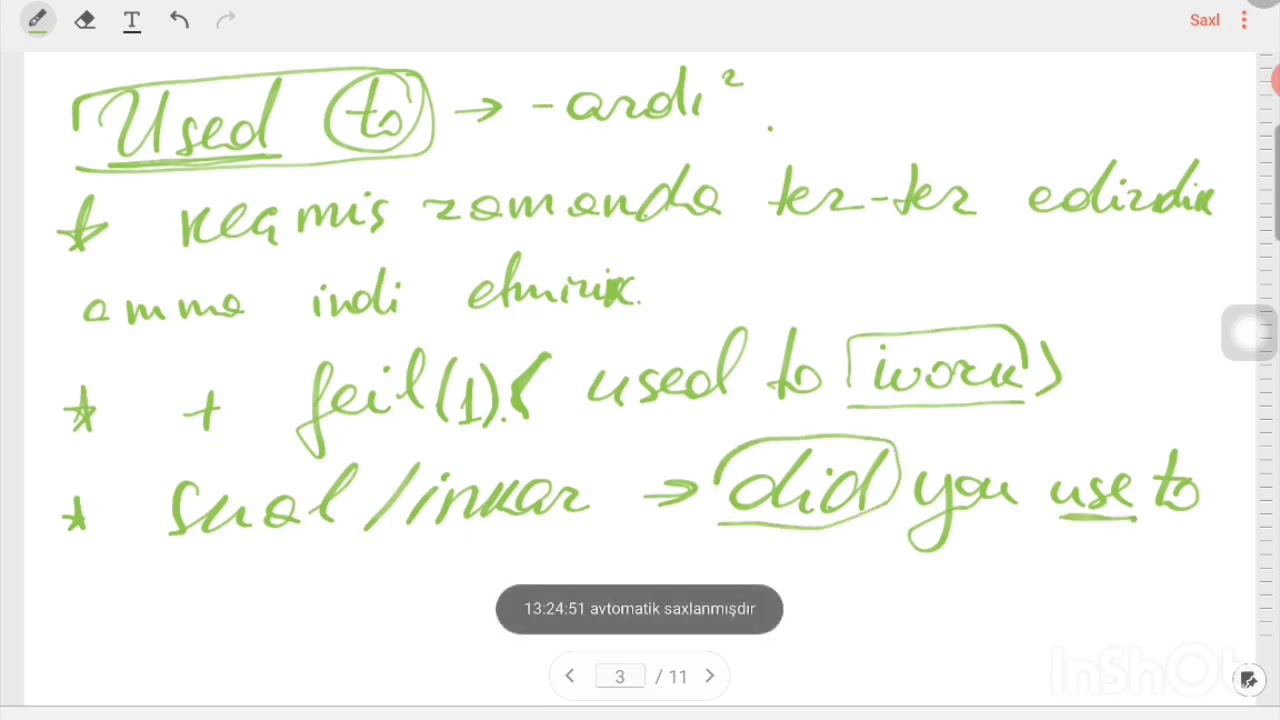 Saxl
Used to → -ardı²
* keçmiş zamanda tez-tez edirdik
amma indi etmirik.
* + feil(1). (used to work)
* sual/inkar → did you use to
13:24:51 avtomatik saxlanmışdır
3 / 11
InShOt